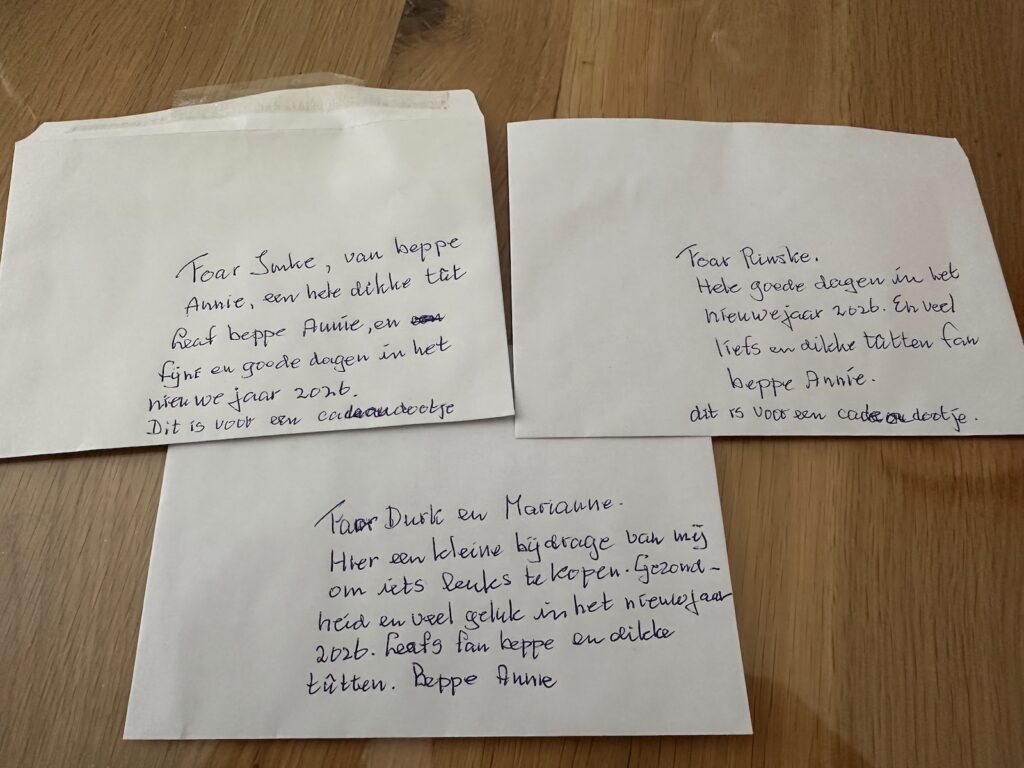 Foar Imke, van beppe
Annie, een hele dikke tût
Leaf beppe Annie, en
fijne en goede dagen in het
nieuwe jaar 2026.
Dit is voor een cadeaudootje
Foar Rinske.
Hele goede dagen in het
nieuwe jaar 2026. En veel
liefs en dikke tûtten fan
beppe Annie.
dit is voor een cadeaudootje.
Foar Durk en Marianne.
Hier een kleine bijdrage van mij
om iets leuks te kopen. Gezond-
heid en veel geluk in het nieuwe jaar
2026. Leafs fan beppe en dikke
tûtten. Beppe Annie